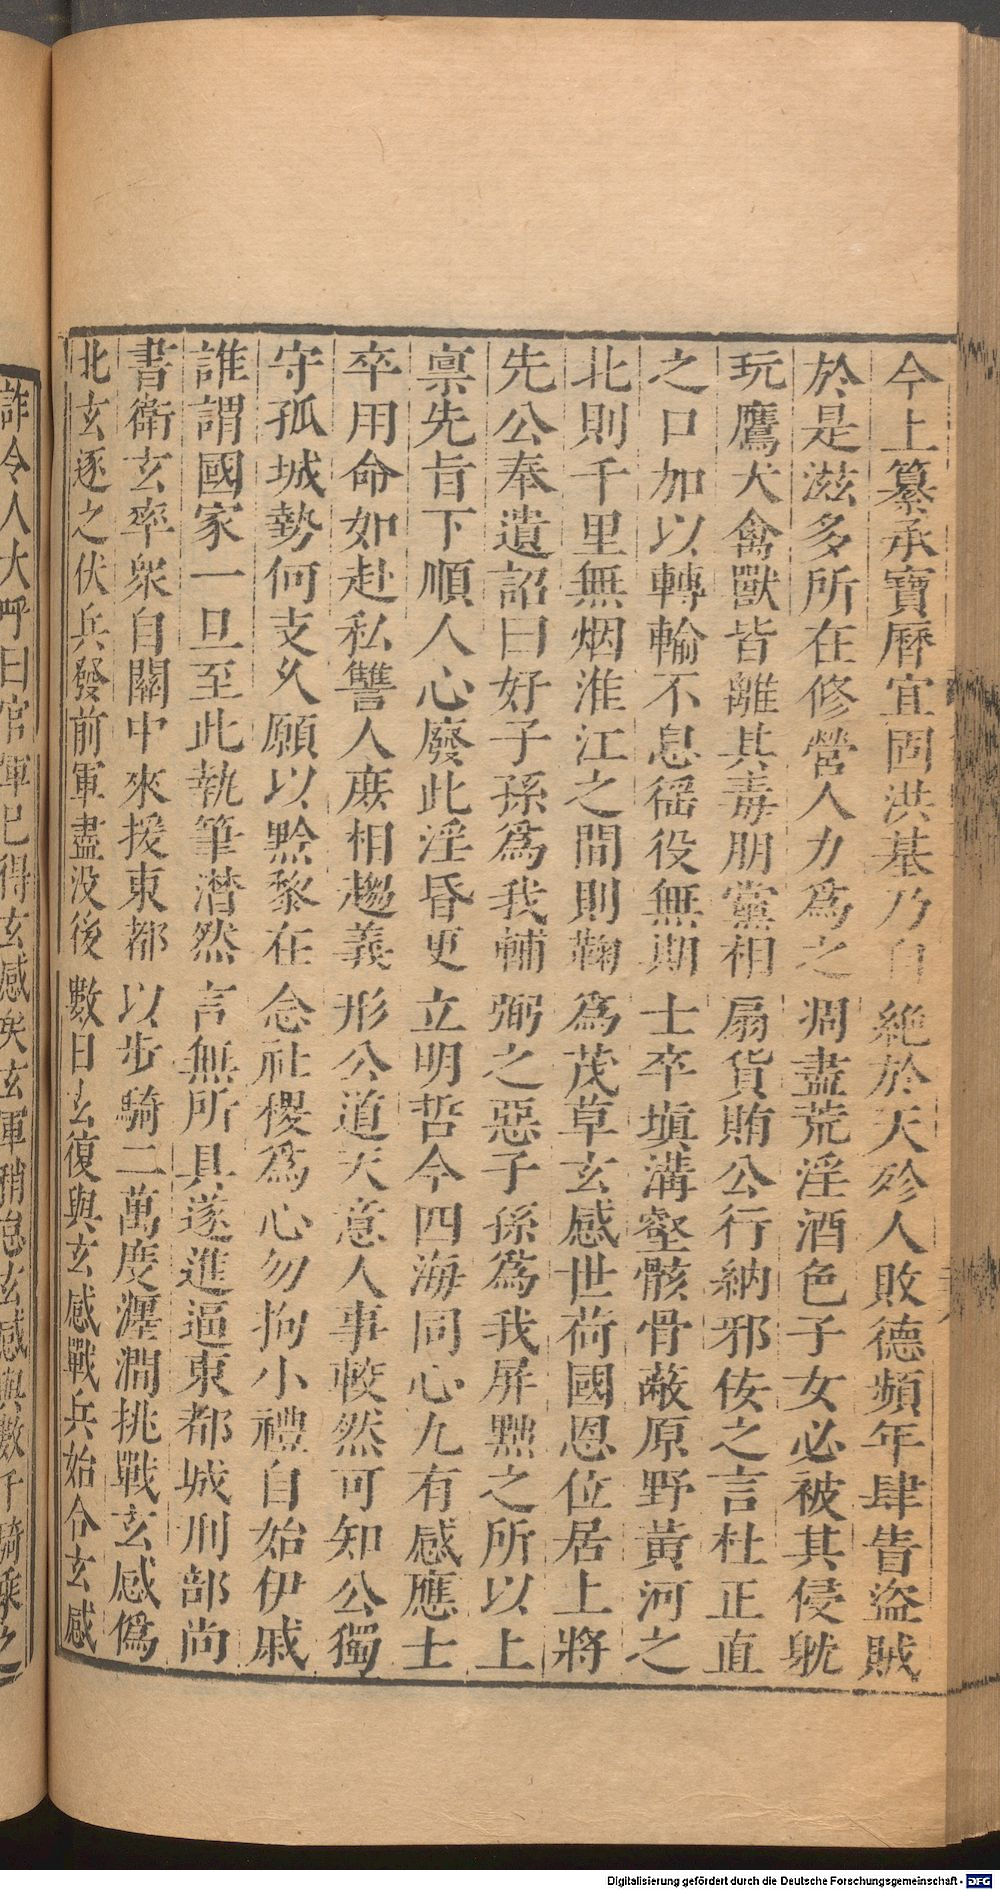 今上纂承寶曆宜固洪基乃自絶於天殄人敗德頻年肆眚盜賊
於是滋多所在修營人力爲之凋盡荒淫酒色子女必被其侵躭
玩鷹犬禽獸皆離其毒朋黨相扇貨賄公行納邪佞之言杜正直
之口加以轉輸不息徭役無期士卒塡溝壑骸骨蔽原野黃河之
北則千里無烟淮江之間則鞠爲茂草玄感世荷國恩位居上將
先公奉遺詔曰好子孫爲我輔弼之惡子孫爲我屏黜之所以上
稟先旨下順人心廢此淫昏更立明哲今四海同心九有感應士
卒用命如赴私讐人庶相趨義形公道天意人事較然可知公獨
守孤城勢何支久願以黔黎在念社稷爲心勿拘小禮自始伊戚
誰謂國家一旦至此執筆潸然言無所具遂進逼東都城刑部尚
書衛玄率衆自關中來援東都以步騎二萬度瀍澗挑戰玄感僞
北玄逐之伏兵發前軍盡没後數日玄復與玄感戰兵始合玄感
詐令人大呼曰官軍已得玄感矣玄軍稍怠玄感與數千騎乘之
Digitalisierung gefördert durch die Deutsche Forschungsgemeinschaft - DFG